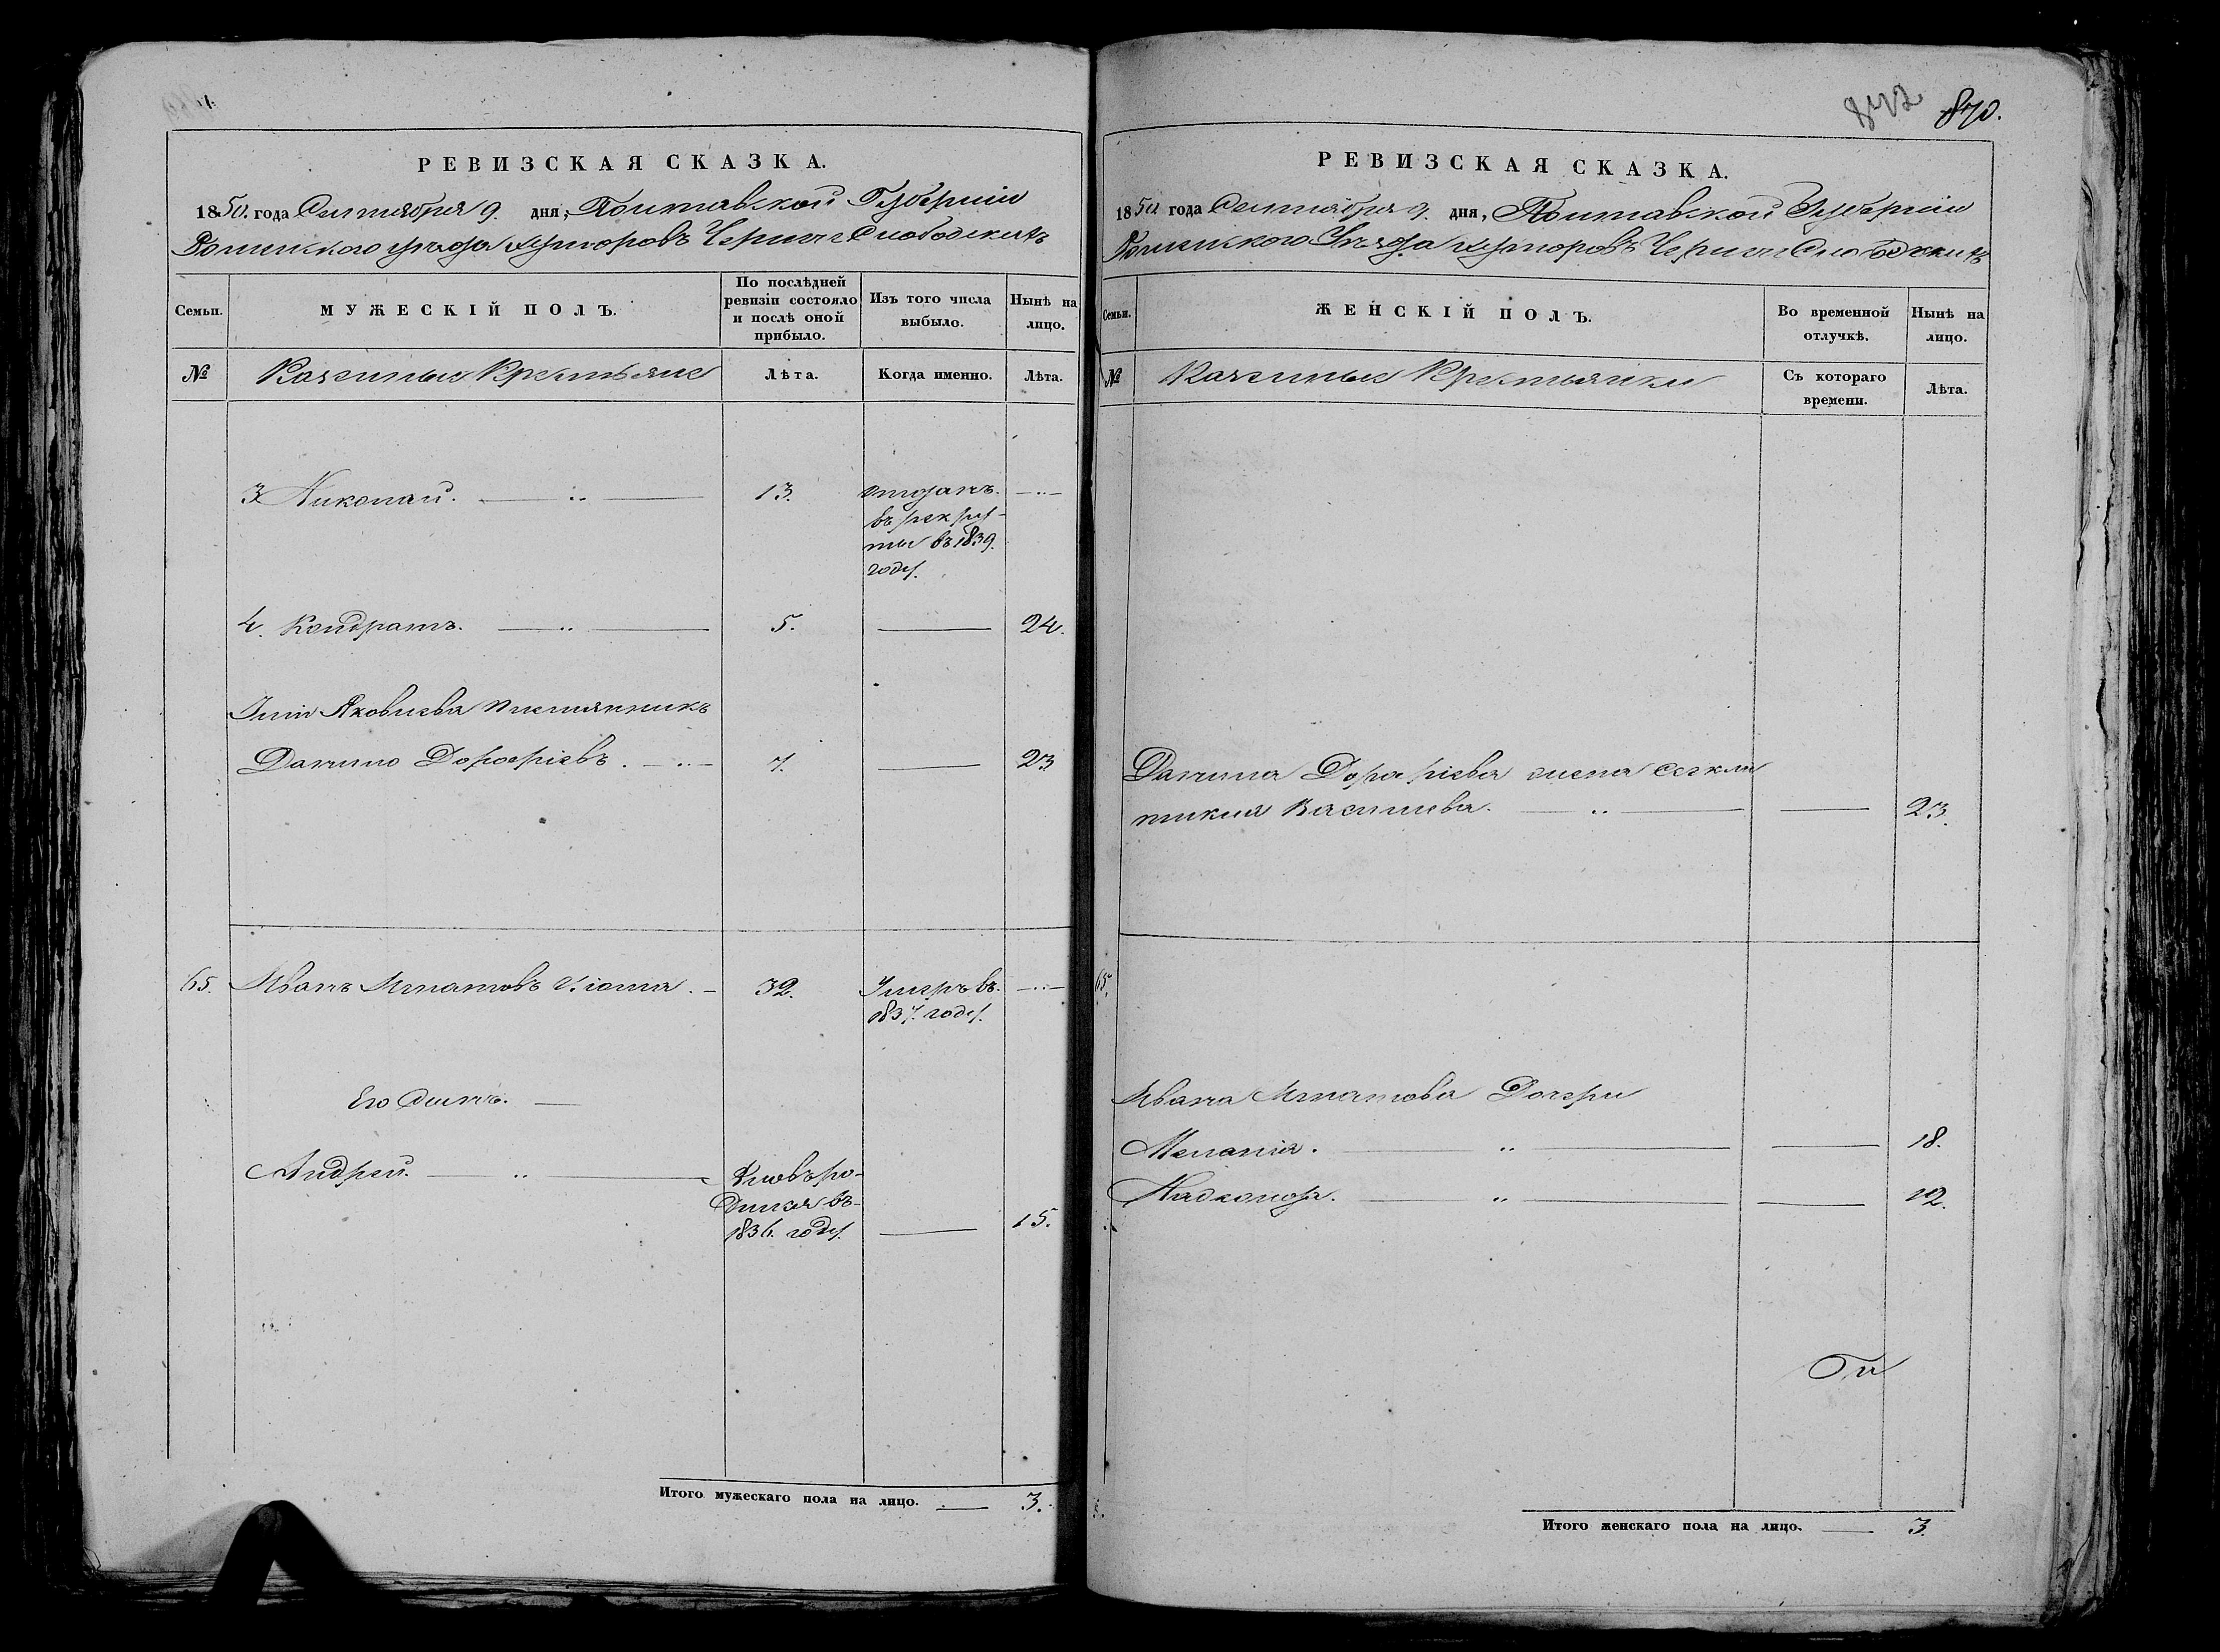 РЕВИЗСКАЯ СКАЗКА.
1850. года Сентября 9. дня, Полтавской Губерніи
Роменского уѣзда хуторовъ Черчече Слободскихъ
Семьи.
МУЖЕСКІЙ ПОЛЪ.
По послѣдней ревизіи состояло и послѣ оной прибыло.
Изъ того числа выбыло.
Нынѣ на лицо.
№
Казенные Крестьяне
Лѣта.
Когда именно.
Лѣта.
3 Николай. 13. отданъ
въ рекру-
ты въ 1839.
году.
4. Кондратъ. 5. 24.
Яковлева племянникъ
Данило Дорофѣевъ. 7. 23
65. Иванъ Игнатовъ 32. Умеръ въ
1837. году.
Его Сынъ.
Андрей. Вновь ро-
дился въ
1836. году. 15.
Итого мужескаго пола на лицо. 3.
872 870.
РЕВИЗСКАЯ СКАЗКА.
1850 года Сентября 9. дня, Полтавской Губерніи
Роменского Уѣзда хуторовъ Слободскихъ
Семьи.
ЖЕНСКІЙ ПОЛЪ.
Во временной отлучкѣ.
Нынѣ на лицо.
№
Казенные Крестьянки
Съ котораго времени.
Лѣта.
Данила Дорофѣева жена
Васильева. 23.
65.
Ивана Игнатова Дочери
Меланія. 18.
12.
Итого женскаго пола на лицо. 3.